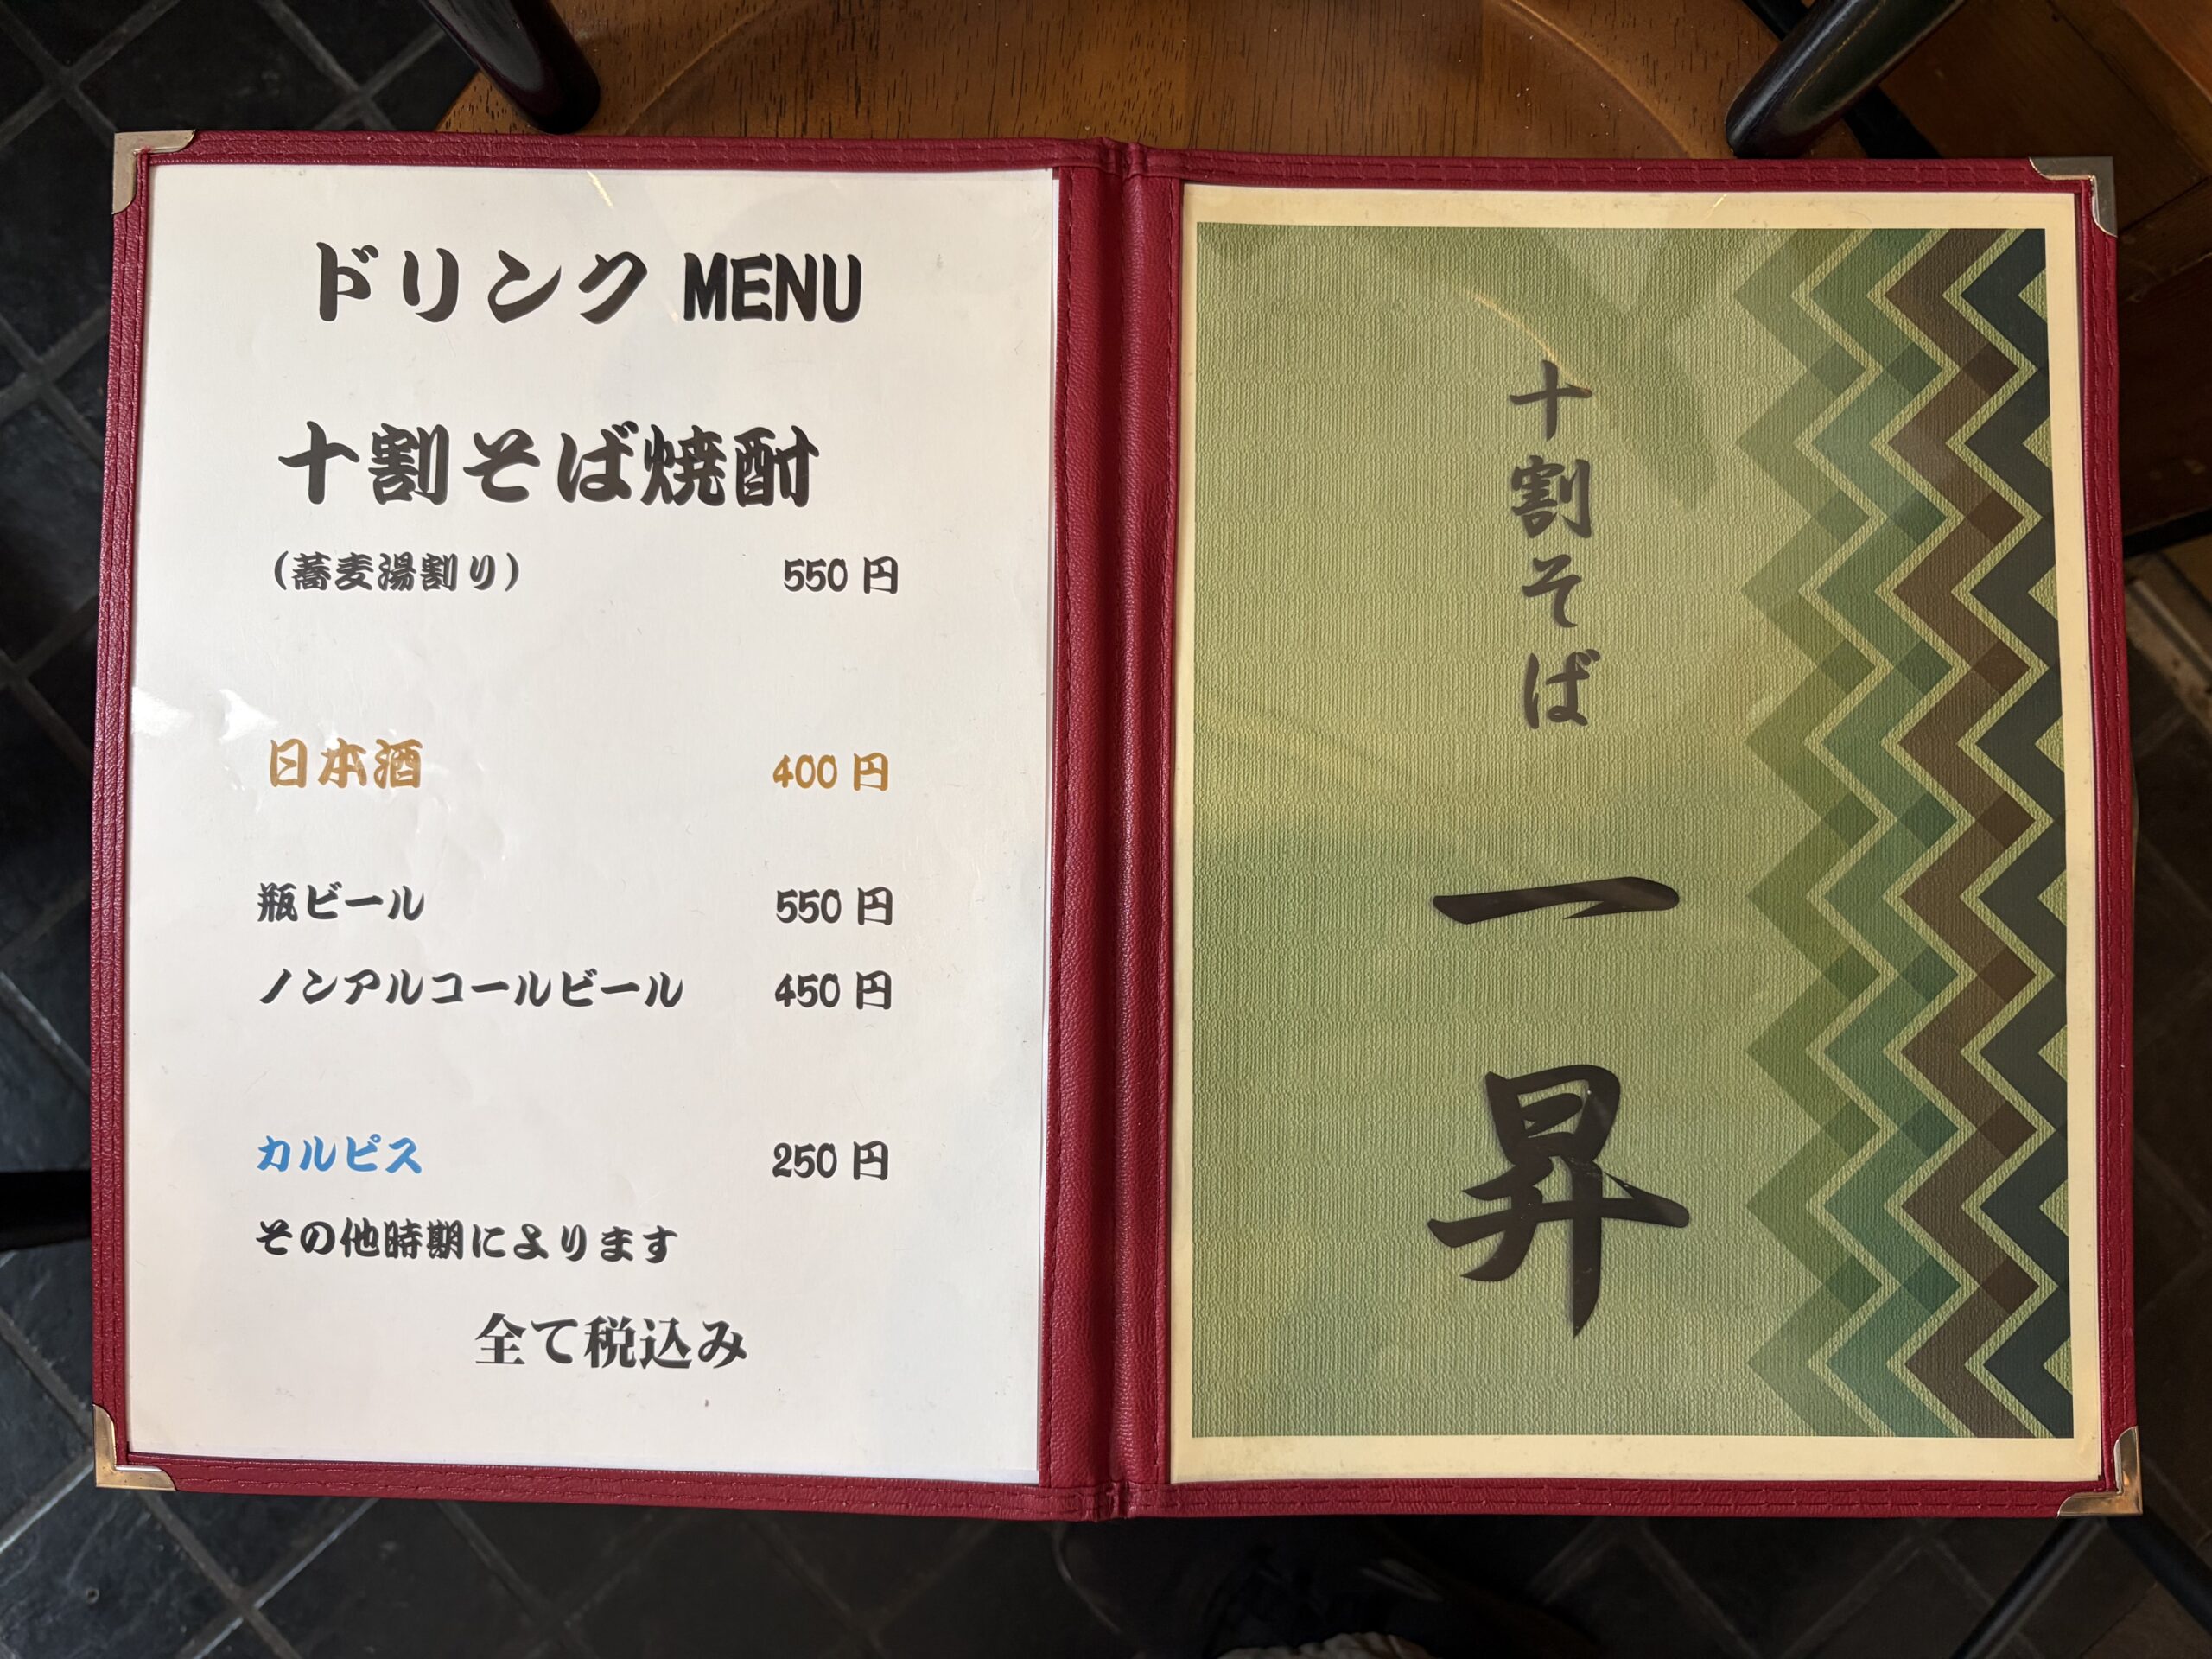 ドリンク MENU
十割そば焼酎
（蕎麦湯割り） 550 円
日本酒 400 円
瓶ビール 550 円
ノンアルコールビール 450 円
カルピス 250 円
その他時期によります
全て税込み
十割そば
一昇